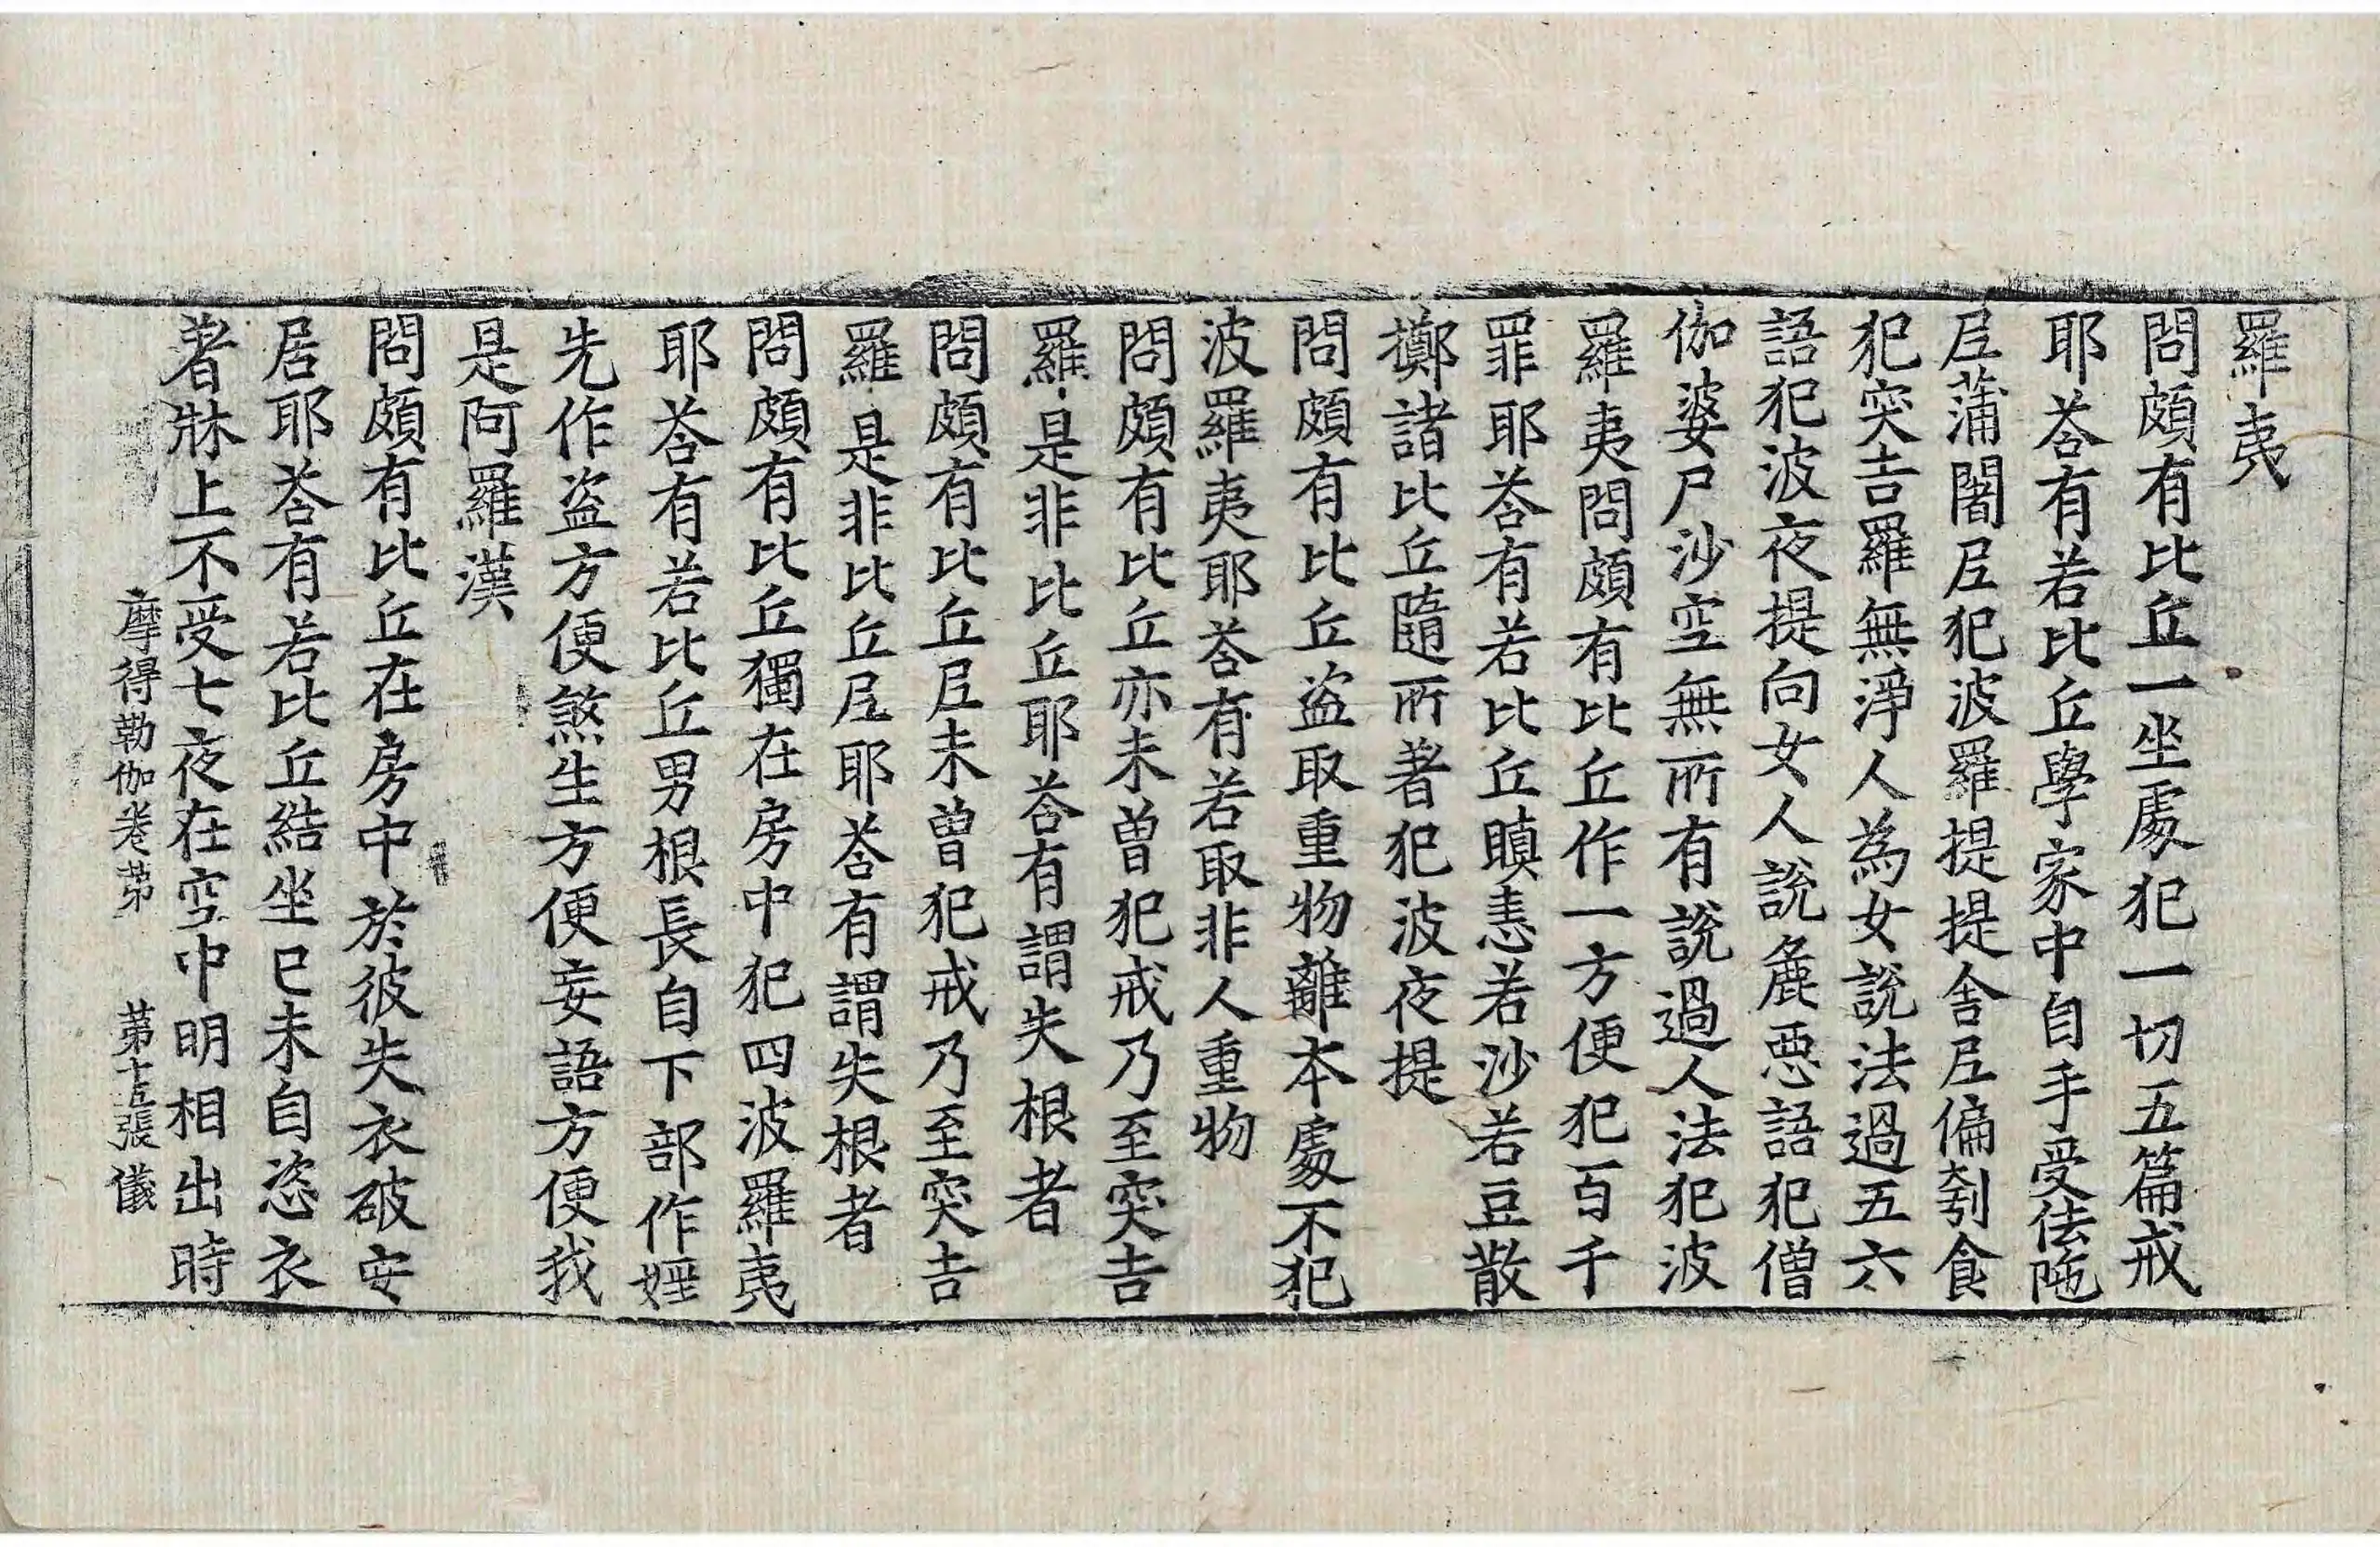 羅夷
問頗有比丘一坐處犯一切五篇戒
耶荅有若比丘學家中自手受佉陁
尼蒲闍尼犯波羅提提舍尼偏刳食
犯突吉羅無淨人為女說法過五六
語犯波夜提向女人說麁惡語犯僧
伽婆尸沙空無所有說過人法犯波
羅夷問頗有比丘作一方便犯百千
罪耶荅有若比丘瞋恚若沙若豆散
擲諸比丘隨所著犯波夜提
問頗有比丘盜取重物離本處不犯
波羅夷耶荅有若取非人重物
問頗有比丘亦未曾犯戒乃至突吉
羅是非比丘耶荅有謂失根者
問頗有比丘尼未曾犯戒乃至突吉
羅是非比丘尼耶荅有謂失根者
問頗有比丘獨在房中犯四波羅夷
耶荅有若比丘男根長自下部作婬
先作盜方便煞生方便妄語方便我
是阿羅漢
問頗有比丘在房中於彼失衣破安
居耶荅有若比丘結坐已未自恣衣
著牀上不受七夜在空中明相出時
摩得勒伽卷第 第十五張 儀